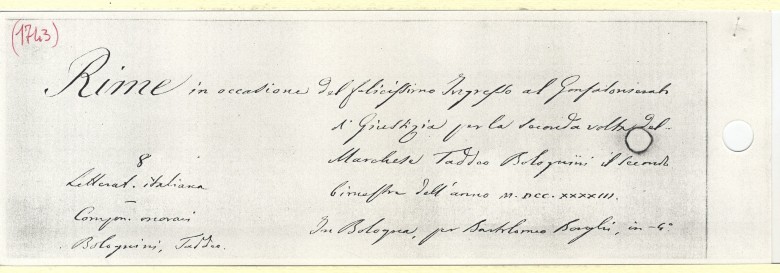 (1743)
Rime in occasione del felicissimo Ingresso al Gonfalonierato
di Giustizia per la seconda volta del
Marchese Taddeo Bolognini il secondo
bimestre dell'anno M.DCC.XXXXIII.
In Bologna, per Bartolomeo Borghi, in-4°
8
Letterat. italiana
Compon. onorari
Bolognini, Taddeo.